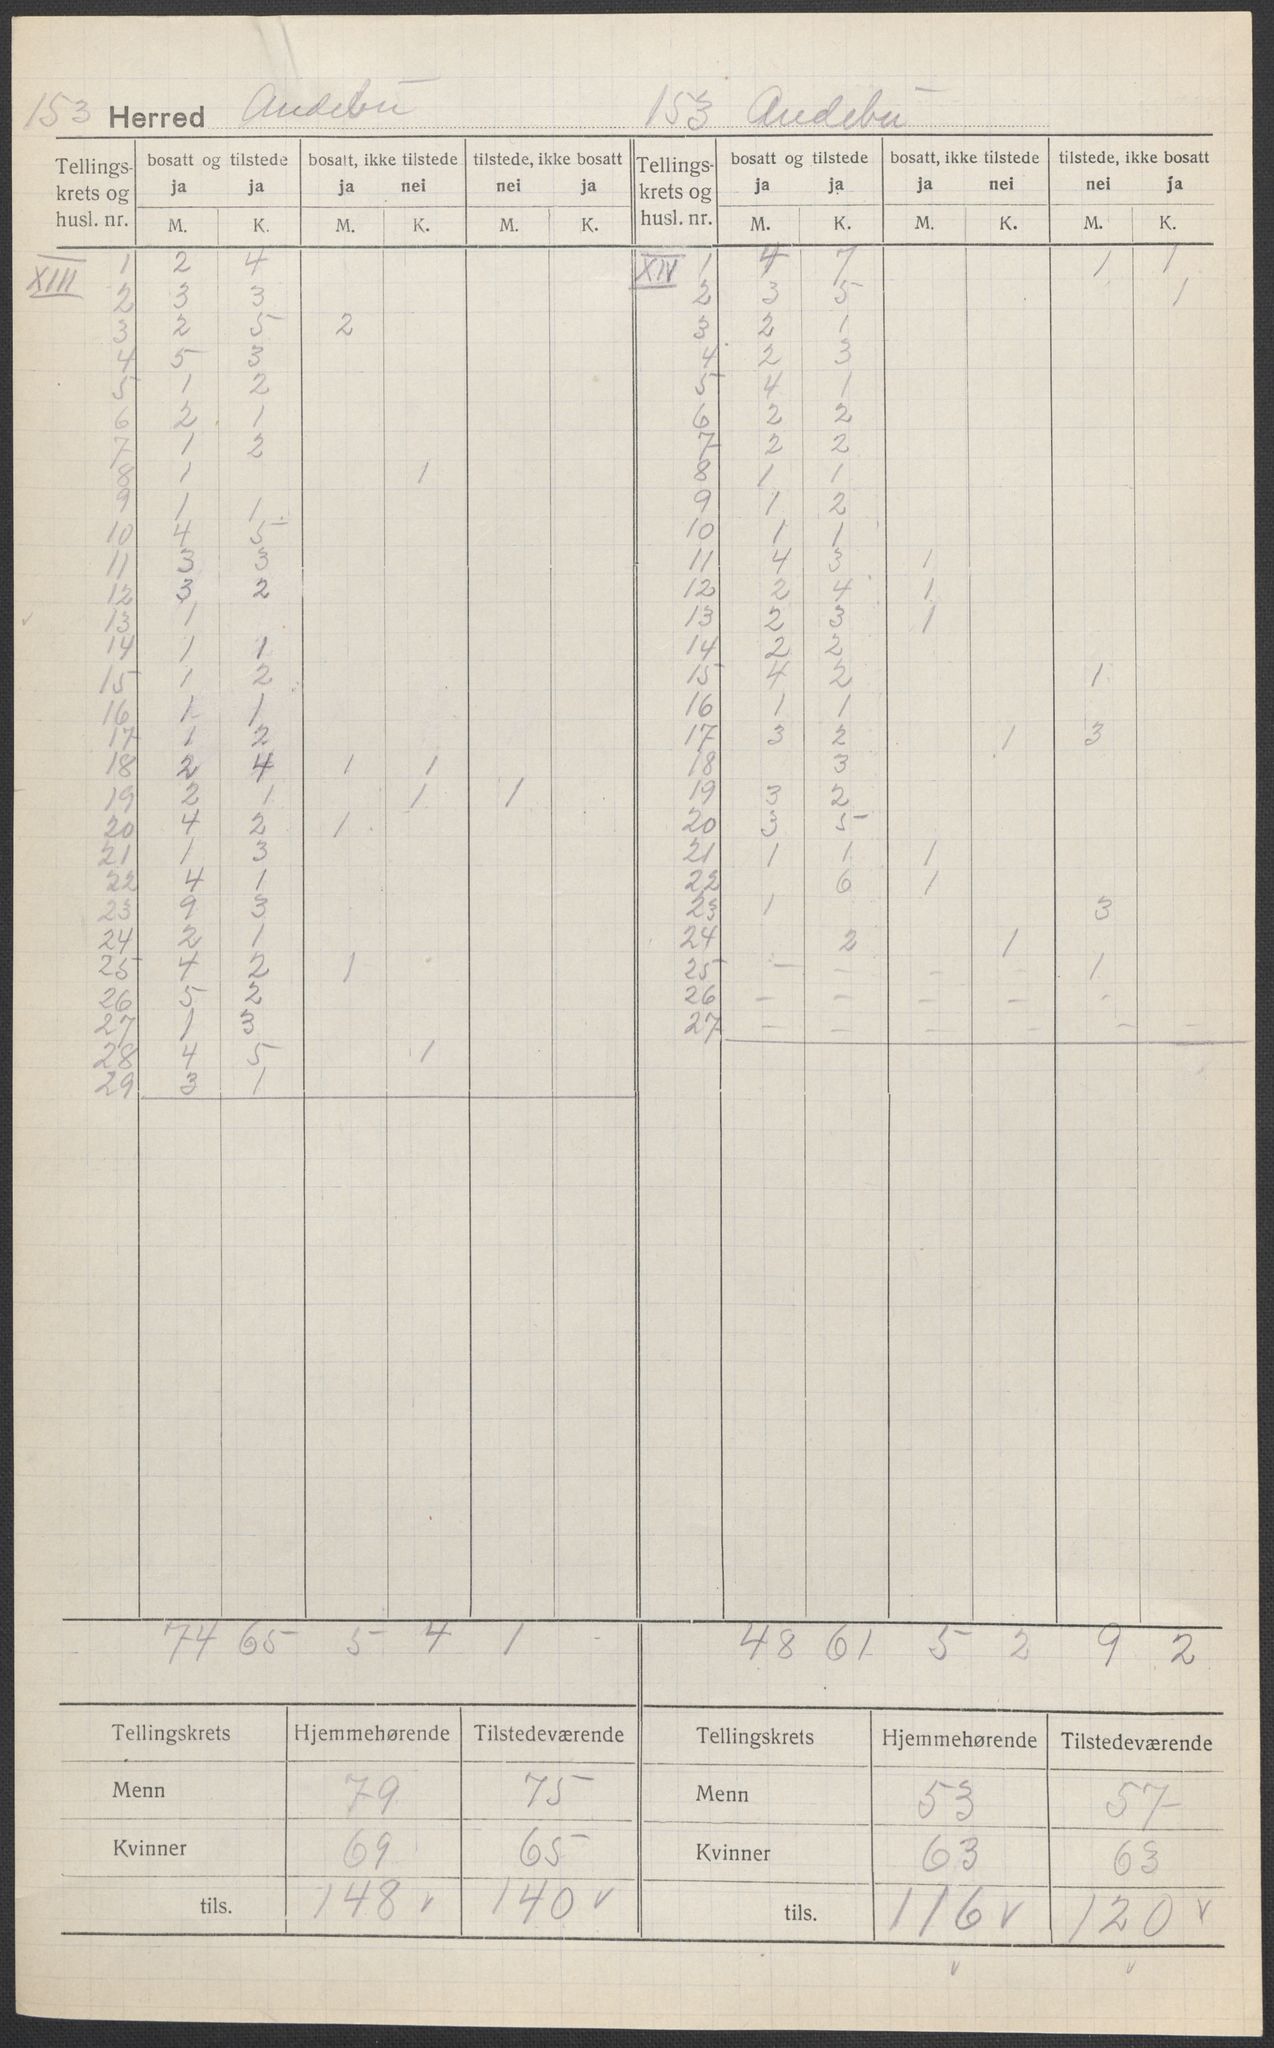 153 Herred Andebu 153 Andebu
Tellings- bosatt og tilstede bosatt, ikke tilstede tilstede, ikke bosatt Tellings- bosatt og tilstede bosatt, ikke tilstede tilstede, ikke bosatt
krets og ja ja ja nei nei ja krets og ja ja ja nei nei ja
husl. nr. M. K. M. K. M. K. husl. nr. M. K. M. K. M. K.
XIII 1 2 4 XIV 1 4 7 1 1
2 3 3 2 3 5 1
3 2 5 2 3 2 1
4 5 3 4 2 3
5 1 2 5 4 1
6 2 1 6 2 2
7 1 2 7 2 2
8 1 1 8 1 1
9 1 1 9 1 2
10 4 5 10 1 1
11 3 3 11 4 3 1
12 3 2 12 2 4 1
13 1 13 2 3 1
14 1 1 14 2 2
15 1 2 15 4 2 1
16 1 1 16 1 1
17 1 2 17 3 2 1 3
18 2 4 1 1 18 3
19 2 1 1 1 19 3 2
20 4 2 1 20 3 5
21 1 3 21 1 1 1
22 4 1 22 6 1
23 9 3 23 1 3
24 2 1 24 2 1
25 4 2 1 25 - - - - 1
26 5 2 26 - - - - -
27 1 3 27 - - - - - -
28 4 5 1
29 3 1
74 65 5 4 1 - 48 61 5 2 9 2
Tellingskrets Hjemmehørende Tilstedeværende Tellingskrets Hjemmehørende Tilstedeværende
Menn 79 75 Menn 53 57
Kvinner 69 65 Kvinner 63 63
tils. 148 v 140 v tils. 116 v 120 v
v v